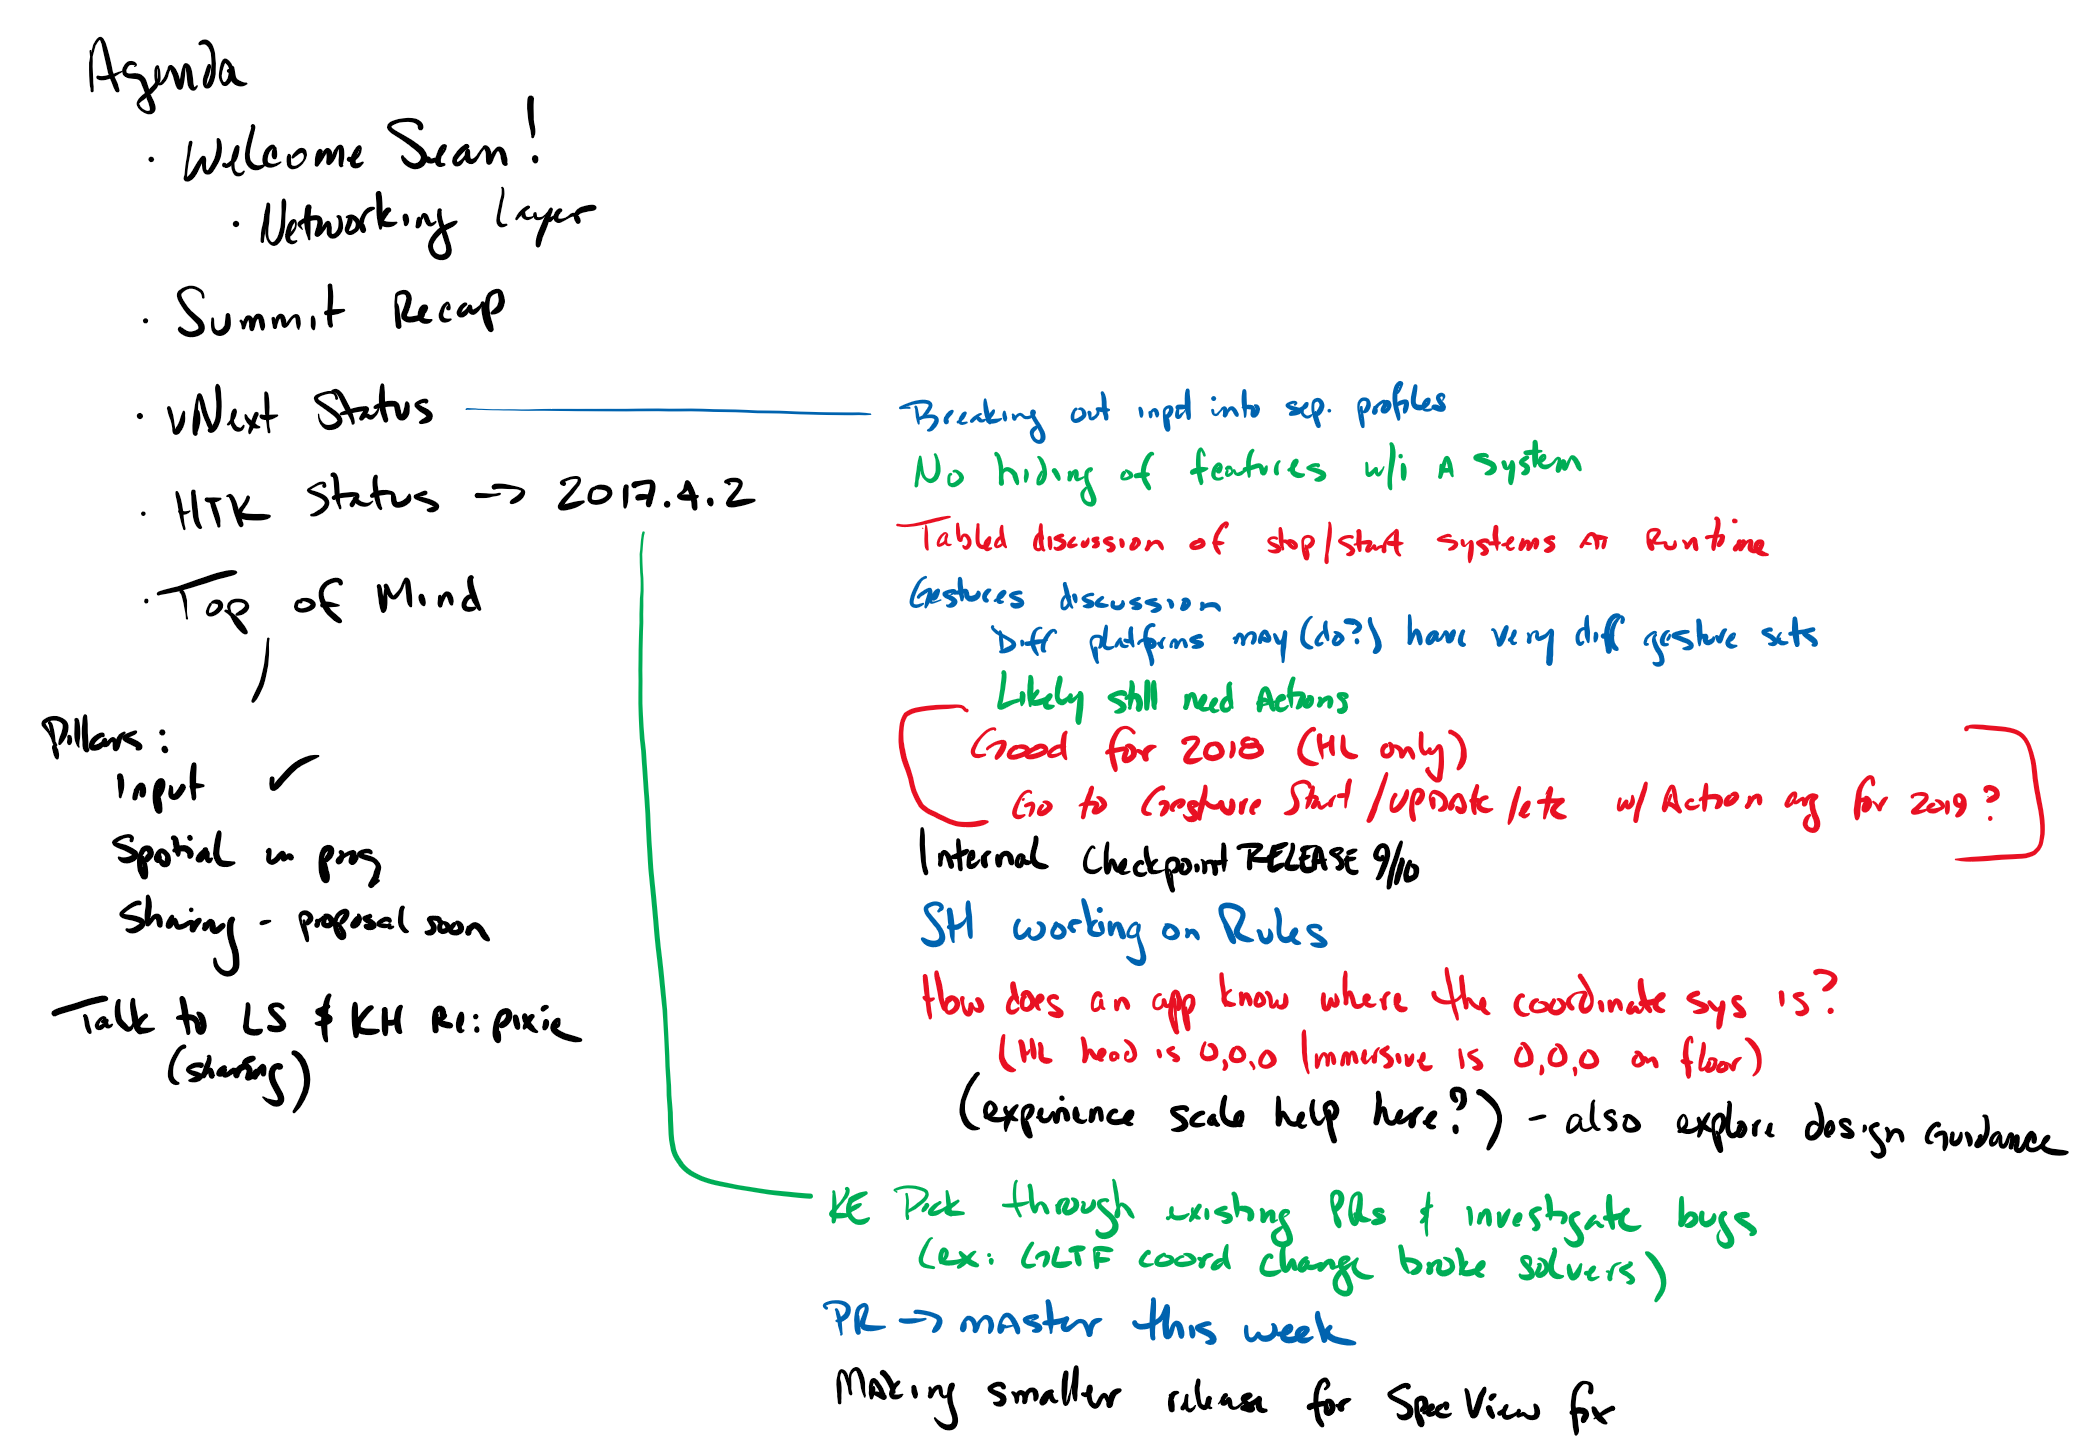 Agenda
· Welcome Sean!
· Networking Layer
· Summit Recap
· vNext Status
· HTK Status -> 2017.4.2
· Top of Mind
Pillars:
Input ✓
Spatial in prog
Sharing - proposal soon
Talk to LS & KH Re: pixie
(sharing)
Breaking out input into sep. profiles
No hiding of features w/i A system
Tabled discussion of stop/start systems AT Runtime
Gestures discussion
Diff platforms may (do?) have very diff gesture sets
Likely still need Actions
Good for 2018 (HL only)
Go to Gesture Start/Update/etc w/ Action arg for 2019?
Internal Checkpoint RELEASE 9/10
SH working on Rules
How does an app know where the coordinate sys is?
(HL head is 0,0,0 Immersive is 0,0,0 on floor)
(experience scale help here?) - also explore design Guidance
KE Pick through existing PRs & investigate bugs
(ex: GLTF coord change broke solvers)
PR -> master this week
Making smaller release for SpecView fix